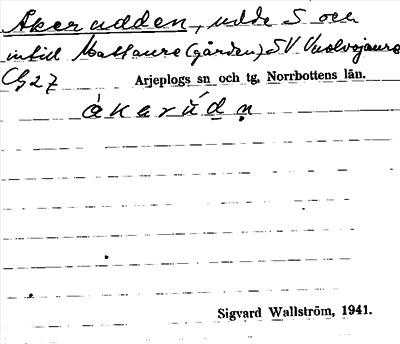 Åkerudden, udde S och
intill Mattaure (gården) SV Vuolvojaure
Cg 27 Arjeplogs sn och tg, Norrbottens län.
åkarúdn̥
Sigvard Wallström, 1941.